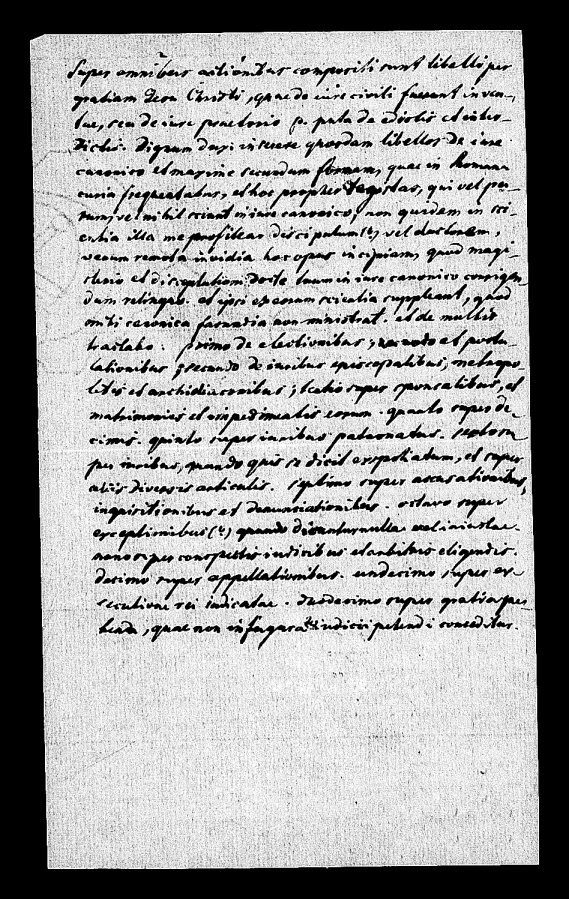 Super omnibus actionibus compositi sunt libelli per
gratiam Jesu Christi, quae de iure civili fuerant inven-
tae, seu de iure praetorio p. puta de edictis et inter-
dictis. Dignum duxi inserere quosdam libellos de iure
canonico et maxime secundum formam, quae in Romana
curia frequentatur, et hoc propter legistas, qui vel pa-
rum, vel nihil sciunt in iure canonico, non quidem in sci-
entia illa me profitear discipulum (?) vel doctorem,
verum remota invidia hoc opus incipiam, quod magi-
sterio et discipulationi doctorum in iure canonico corrigen-
dum relinquo. et ipsi eorum scientia suppleant, quod
mihi canonica facundia non ministrat. et de multis
tractabo. primo de electionibus, et postu-
lationibus, secundo de iuribus episcopalibus, metropo-
litis et archidiaconibus, tertio super sponsalibus, et
matrimoniis et impedimentis eorum. quarto super de-
cimis. quinto super iuribus patronatus. sexto su-
per iuribus, quando quis se dicit exspoliatum, et super
aliis diversis articulis. septimo super accusationibus,
inquisitionibus et denunciationibus. octavo super
exceptionibus (?) quando dicuntur nullae vel iniustae.
nono super conspectis iudicibus et arbitris eligendis.
decimo super appellationibus. undecimo super ex-
secutione rei iudicatae. duodecimo super gratia pe-
tenda, quae non in figura iudicii petendi conceditur.